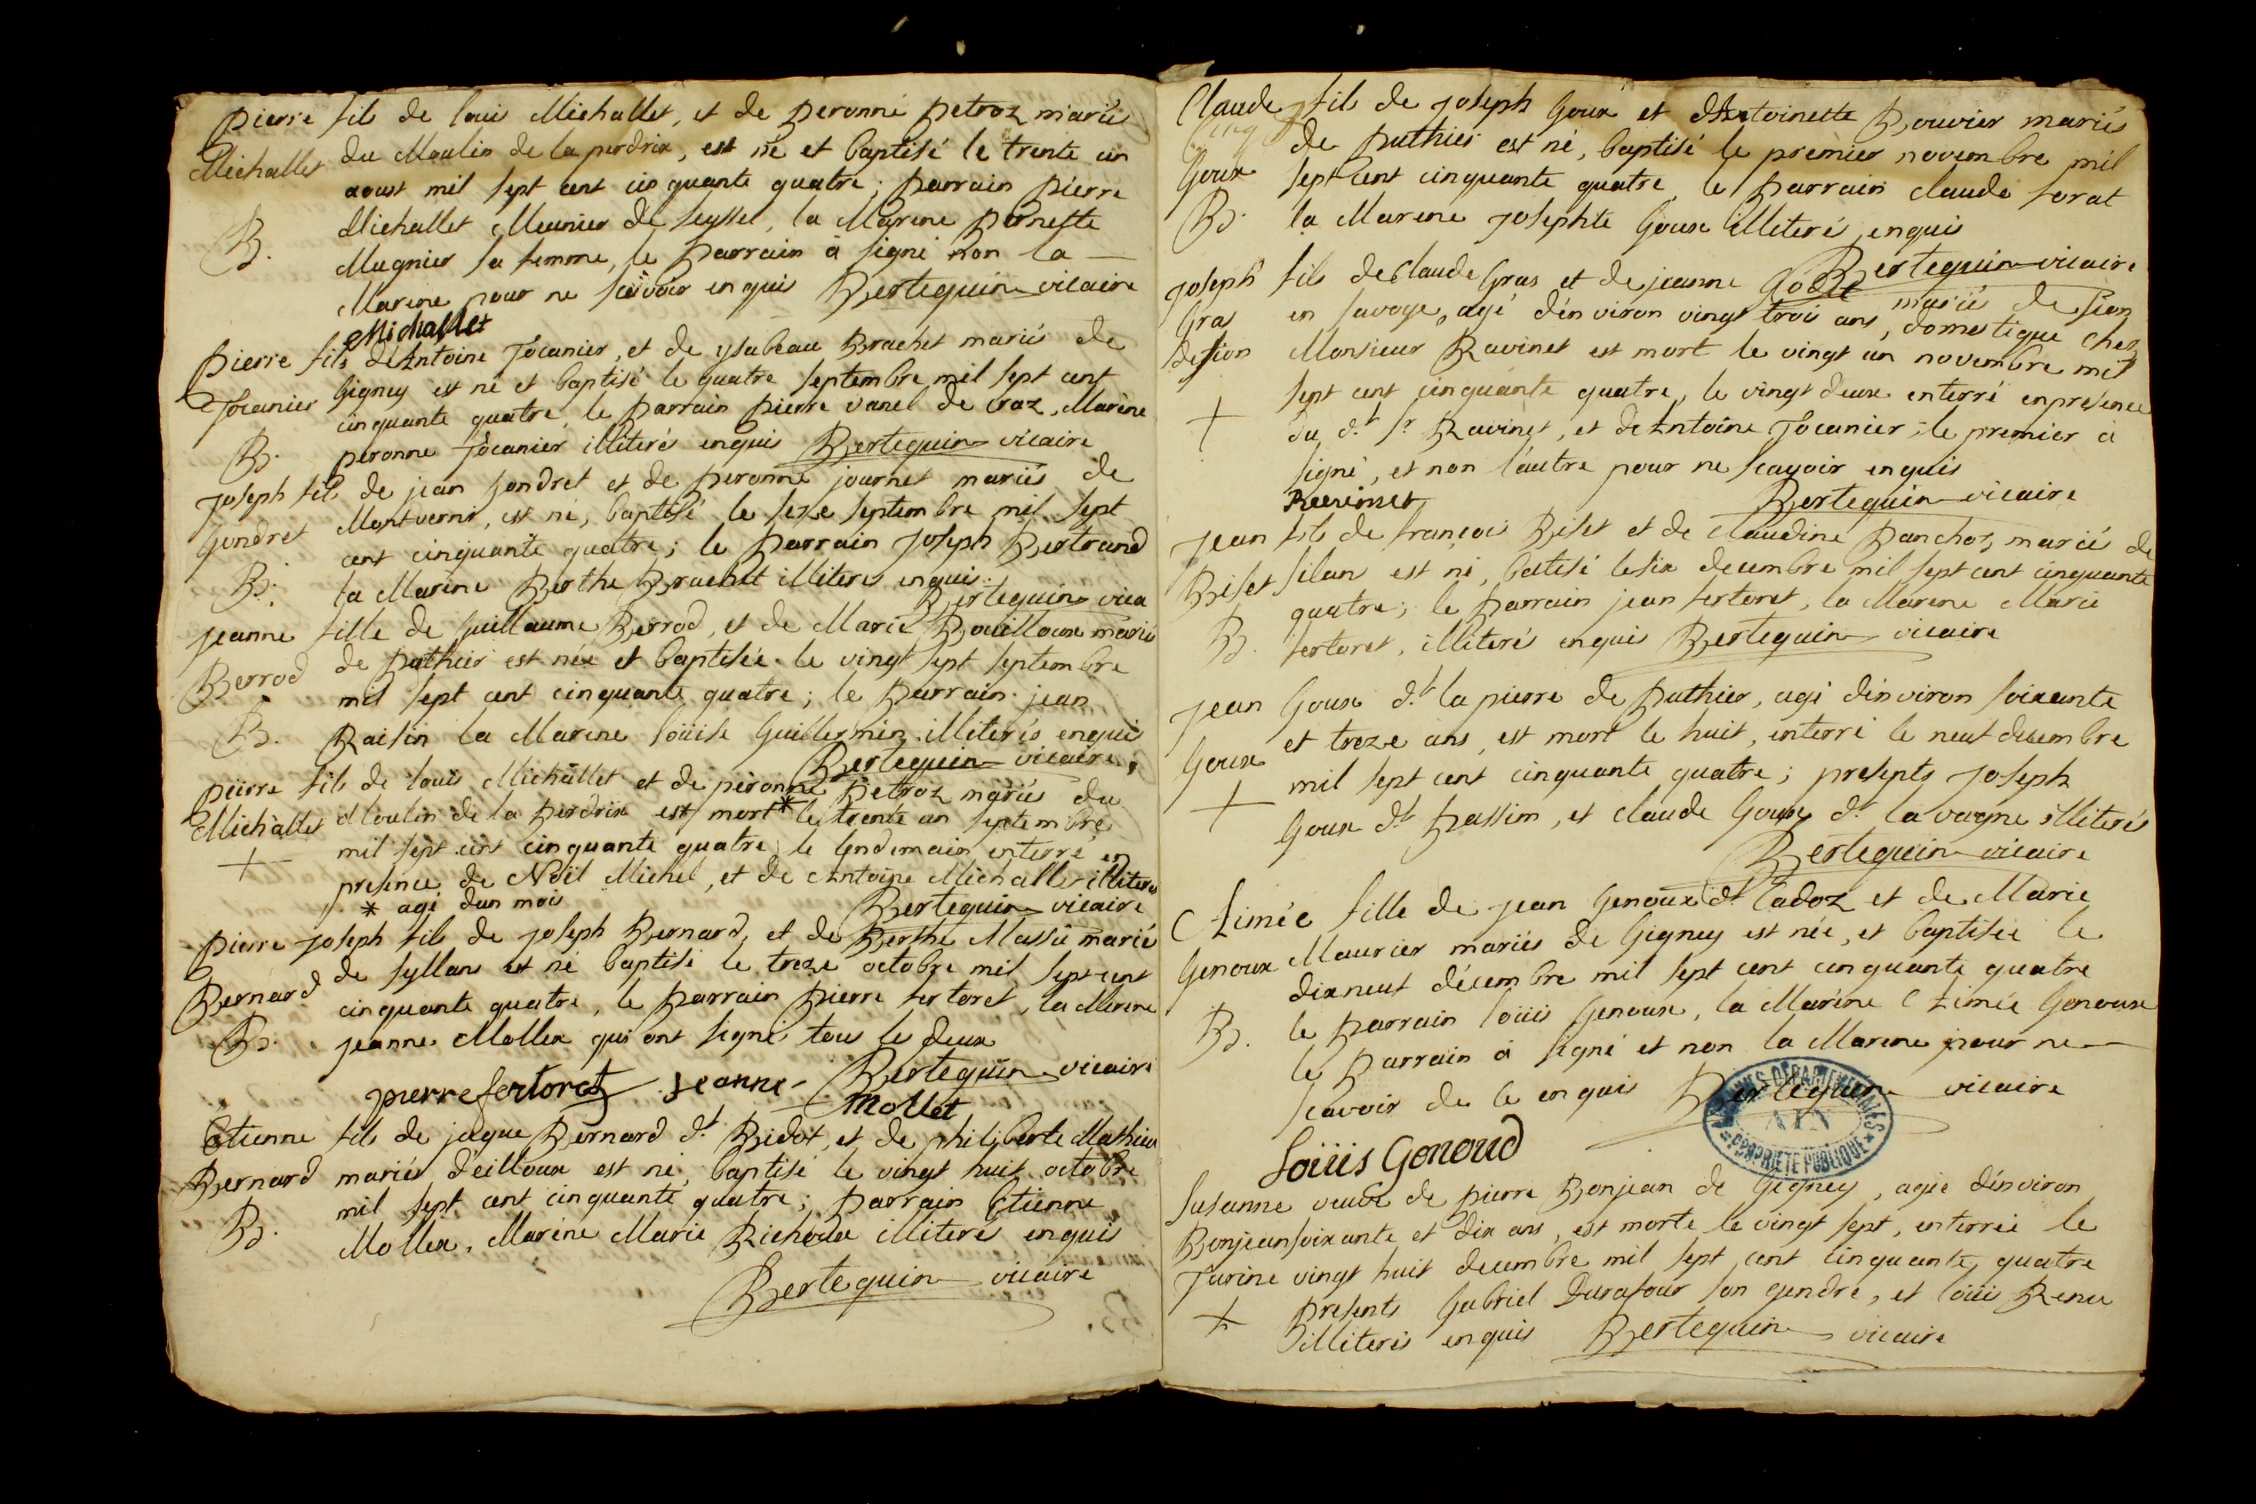 pierre fils de louis Michallet, et de peronne petroz mariés
Michallet du Moulin de la perdrix, est né et baptisé le trente un
aoust mil sept cent cinquante quatre; parrain pierre
Michallet Meunier de seyssel, la Marene pernette
B. Mugnier sa femme, le parrain à signé non la
Marene pour ne sçavoir enquis Bertequin vicaire
Michallet
pierre fils d'Antoine Jocanier, et de ysabeau Brachet mariés de
Jocanier Gigney est né et baptisé le quatre septembre mil sept cent
cinquante quatre, le parrain pierre vanel de craz, Marène
B. peronne Jocanier illiterés enquis Bertequin vicaire
Joseph fils de jean Gondret et de peronne journet mariés de
Gondret Montverni, est né, baptisé le seze septembre mil sept
cent cinquante quatre; le parrain Joseph Bertrand
B. la Marene Berthe Brachet illiteres enquis.
Bertequin vica
Jeanne fille de Guillaume Berrod, et de Marie Bouilloux mariés
Berrod de puthier est née et baptisée le vingt sept septembre
mil sept cent cinquante quatre; le parrain jean
B. Raisin la Marene loüise Guillermin illiterés enquis
Bertequin vicaire
pierre fils de louis Michallet et de peronne petroz mariés du
Michallet Moulin de la perdrix est mort * le trente un septembre
+ mil sept cent cinquante quatre le lendemain enterré en
presence de Noël Michel, et de Antoine Michallet illiteres
* agé d'un mois Bertequin vicaire
pierre Joseph fils de Joseph Bernard, et de Berthe Massié mariés
Bernard de syllans est né baptisé le treze octobre mil sept cent
cinquante quatre, le parrain pierre fertoret, la Marene
B. Jeanne Mollex qui ont signé tous le deux
pierre fertoret Jeanne Bertequin vicaire
mollet
Etienne fils de jaque Bernard d.t Bidot, et de philiberte Mathieu
Bernard mariés d'eilloux est né, baptisé le vingt huit octobre
mil sept cent cinquante quatre; parrain Etienne
B. Mollex, Marene Marie Richoux illiterés enquis
Bertequin vicaire
Claude fils de Joseph Goux et d'Antoinette Bouvier mariés
de puthier est né, baptisé le premier novembre mil
Goux sept cent cinquante quatre, le parrain claude forat
B. la Marene Josephte Goux illiteré, enquis
Bertequin vicaire
Joseph fils de Claude Gras et de jeanne mariés de sion
Gras en savoye, agé d'environ vingt trois ans, domestique chez
de sion Monsieur Ravinet est mort le vingt un novembre mil
sept cent cinquante quatre, le vingt deux enterré en presence
+ du d.t s.r Ravinet, et de Antoine Jocanier, le premier à
signé, et non l'autre pour ne sçavoir enquis
Ravinet Bertequin vicaire
Jean fils de françois Biset et de claudine panchoz, mariés de
Biset silan est né, batisé le six decembre mil sept cent cinquante
quatre; le parrain jean fertoret, la Marene Marie
B. fertoret, illiterés enquis Bertequin vicaire
Jean Goux d.t la pierre de puthier, agé d'environ soixante
Goux et treze ans, est mort le huit, enterré le neuf decembre
mil sept cent cinquante quatre; presents Joseph
+ Goux d.t passim, et claude Goux d.t la vogne illiterés
Bertequin vicaire
Aimée fille de jean Genoux d.t Cadoz et de Marie
Genoux Maurier mariés de Gigney est née, et baptisée le
dixneuf décembre mil sept cent cinquante quatre
B. le parrain loüis Genoux, la Marène Aimée Genoux
le parrain à signé et non la Marene pour ne
sçavoir de le enquis Bertequin vicaire
Loüis Genoud
ARCHIVES DEPARTEMENTALES
AIN
PROPRIETE PUBLIQUE
Susanne veuve de pierre Bonjean de Gigney, agée d'environ
Bonjean soixante et dix ans, est morte le vingt sept, enterrée le
Jarine vingt huit decembre mil sept cent cinquante quatre
+ presents Gabriel Durafour son gendre, et loüis Rena
illiterés enquis Bertequin vicaire